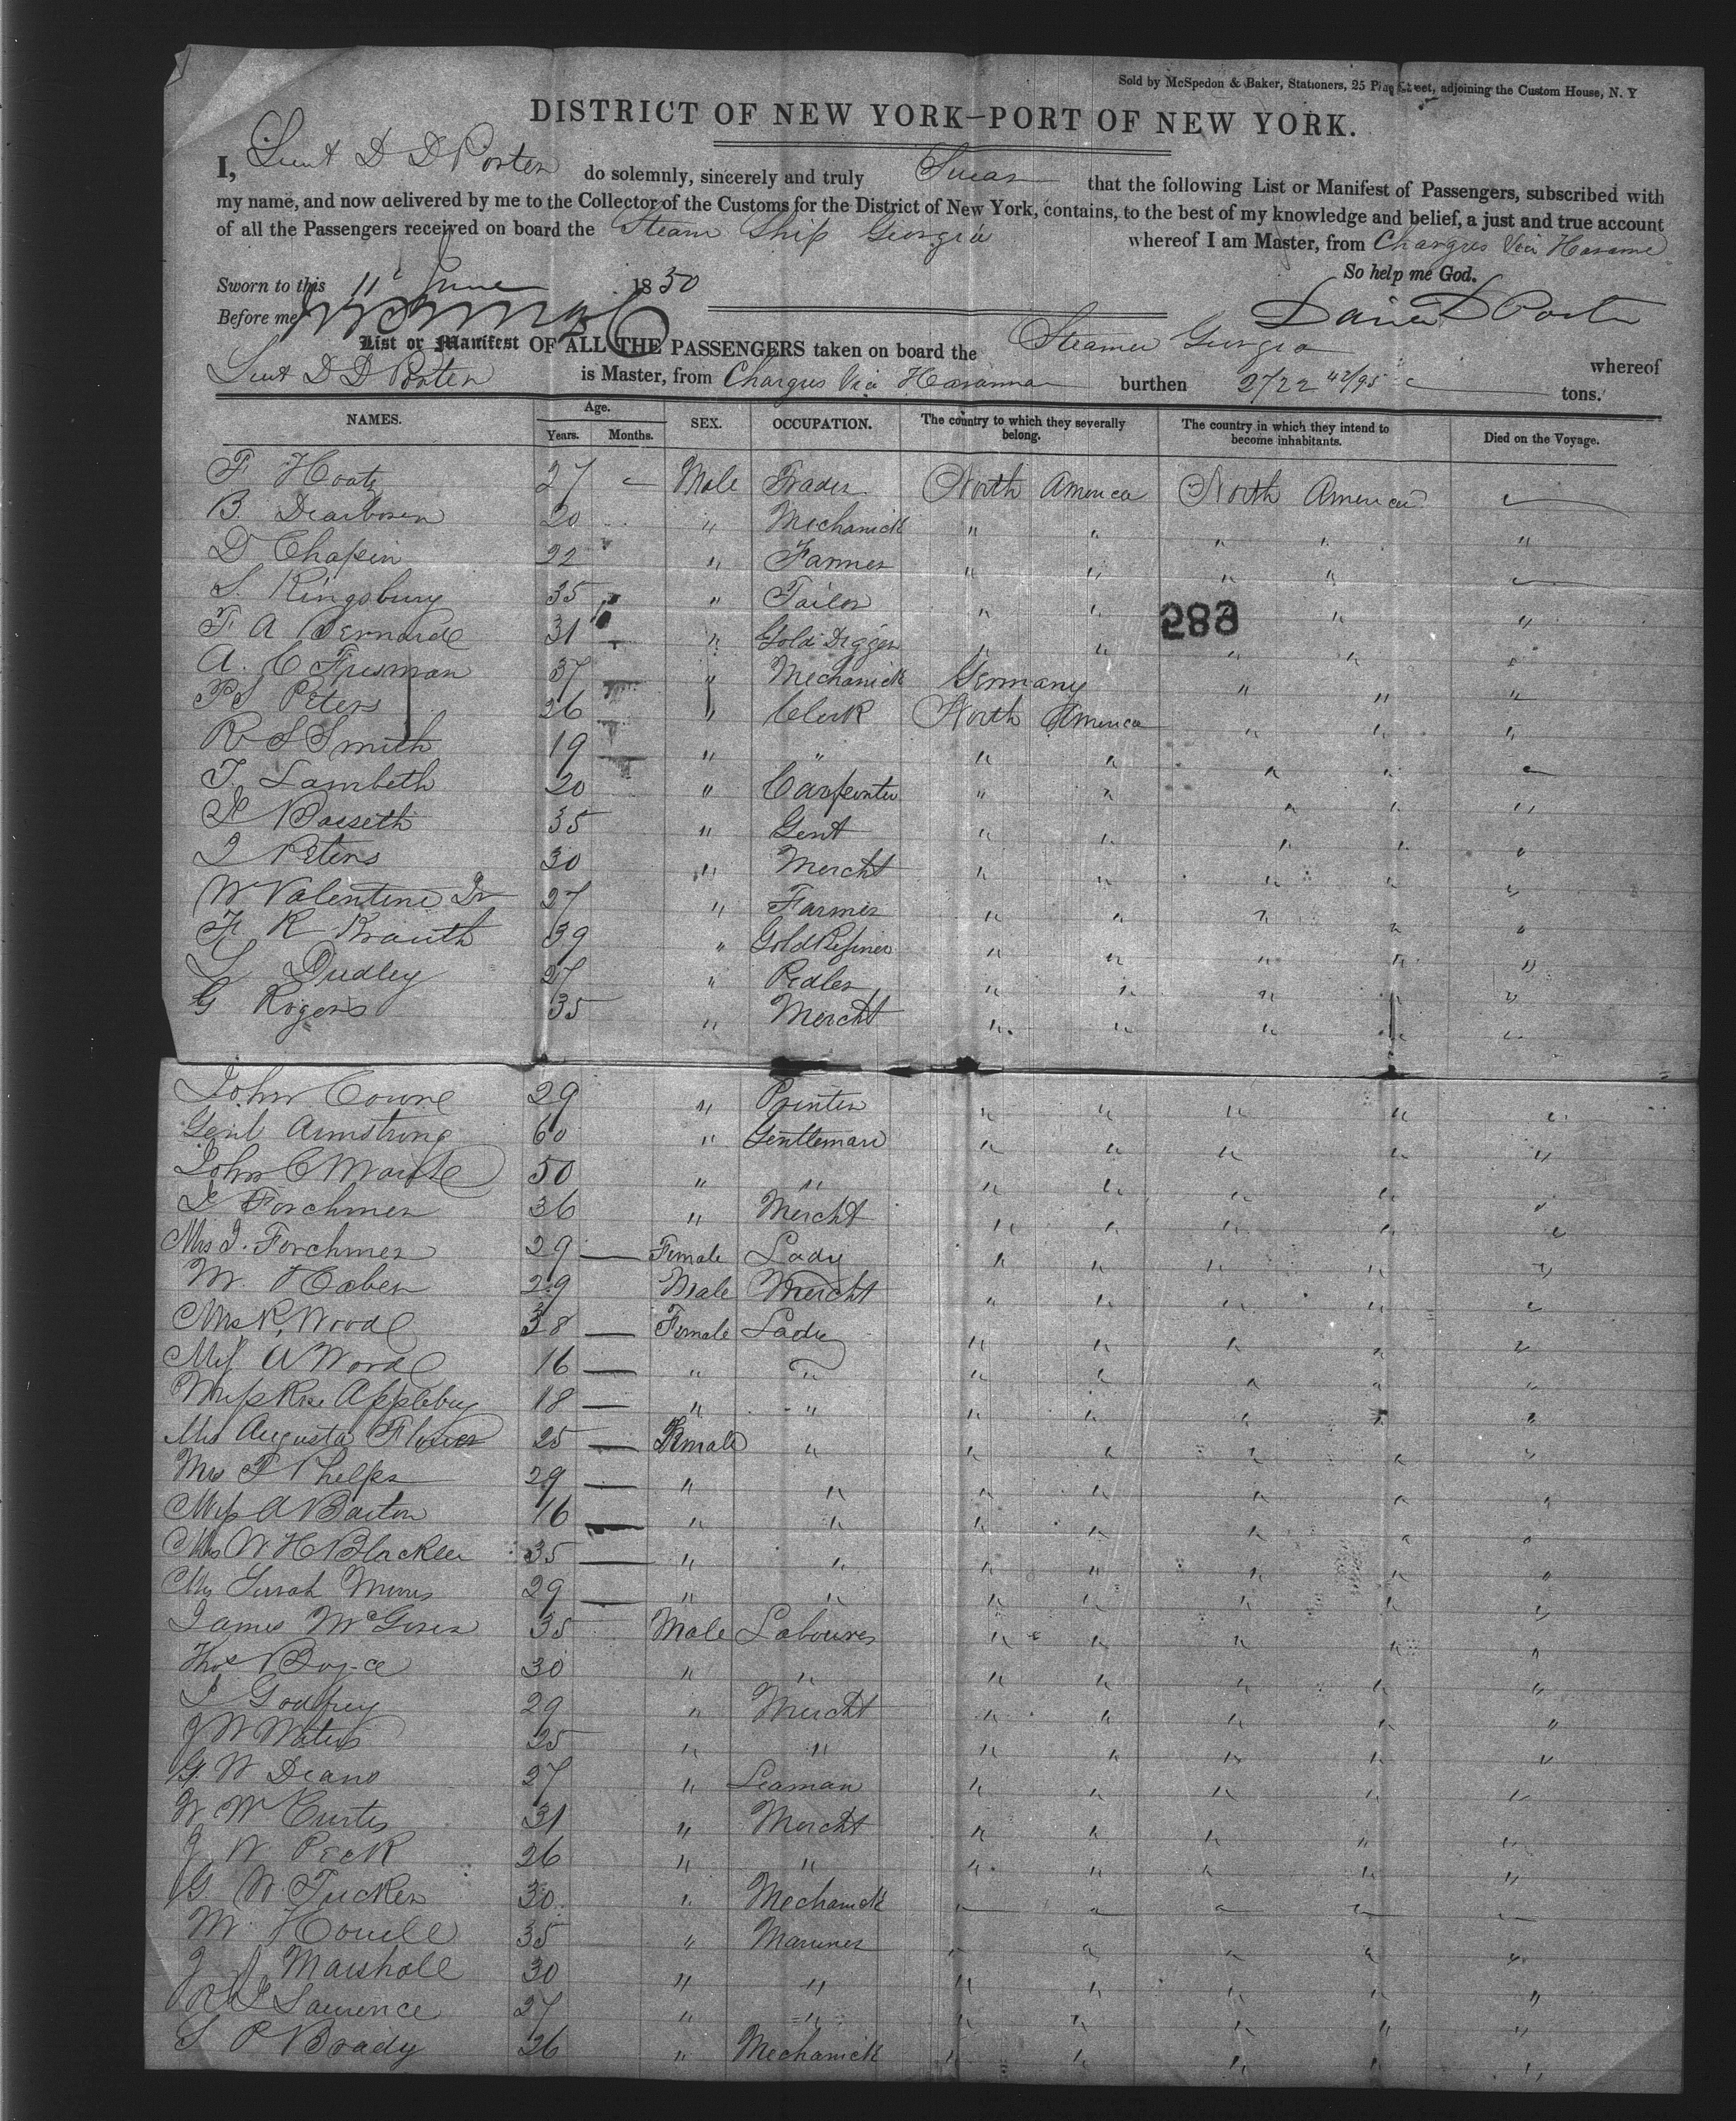 Sold by McSpedon & Baker, Stationers, 25 Pine Street, adjoining the Custom House, N. Y
DISTRICT OF NEW YORK–PORT OF NEW YORK.
I, Lieut D D Porter do solemnly, sincerely and truly Swear that the following List or Manifest of Passengers, subscribed with
my name, and now delivered by me to the Collector of the Customs for the District of New York, contains, to the best of my knowledge and belief, a just and true account
of all the Passengers received on board the Steam Ship Georgia whereof I am Master, from Chargres Via Havana
So help me God.
Sworn to this 11 June 1850
Before me David D Porter
List or Manifest OF ALL THE PASSENGERS taken on board the Steamer Georgia whereof
Lieut D D Porter is Master, from Chargres Via Havanna burthen 2722 42/95 tons.
NAMES. Age. Years. Months. SEX. OCCUPATION. The country to which they severally belong. The country in which they intend to become inhabitants. Died on the Voyage.
F 27 Male Trader North America North America
B. Dearborn 20 " Mechanick " " " " "
D Chapin 22 " Farmer " " " "
S. Kingsbury 35 " Tailor " " " " "
288
F A Bernard 31 " Gold Digger " " " " "
A. C Freisman 37 " Mechanick Germany " " "
P S Peters 26 " Clerk North America " " "
R S Smith 19 " " " " " "
T. Lambeth 20 " Carpenter " " " " "
Basseth 35 " Gent " " " " "
J Peters 30 " Mercht " " " " "
W Valentine Jr 27 " Farmer " " " " "
F R Krauth 39 " Gold Refiner " " " " "
S Dudley 27 " Pedler " " " " "
G Rogers 35 " Mercht " " " " "
John Cowne 29 " Printer " " " " "
Genl Armstrong 60 " Gentleman " " " " "
John C 50 " " " " " " "
J Forchmer 36 " Mercht " " " " "
Mrs J. Forchmer 29 Female Lady " " " " "
M. Haber 29 Male Mercht " " " " "
Mrs R. Wood 38 Female Lady " " " " "
Miss A Wood 16 " " " " " " "
Miss Rose Appleby 18 " " " " " " "
Mrs Augusta Flower 25 Female " " " " " "
Mrs J Phelps 29 " " " " " " "
Miss A Barton 16 " " " " " " "
Mrs W H Blackler 35 " " " " " " "
Mrs Sarah Mims 29 " " " " " " "
James 35 Male Labourer " " " " "
Thos Boyce 30 " " " " " " "
J Godfrey 29 " Mercht " " " " "
J W Waters 25 " " " " " " "
G. W Deans 27 " Seaman " " " " "
W W Curtis 31 " Mercht " " " " "
J W. Peck 26 " " " " " " "
G W. Tucker 30 " Mechanick " " " " "
M. Howell 35 " Mariner " " " " "
J J Marshall 30 " " " " " " "
R J Laurence 27 " " " " " " "
S P Brady 26 " Mechanick " " " " "